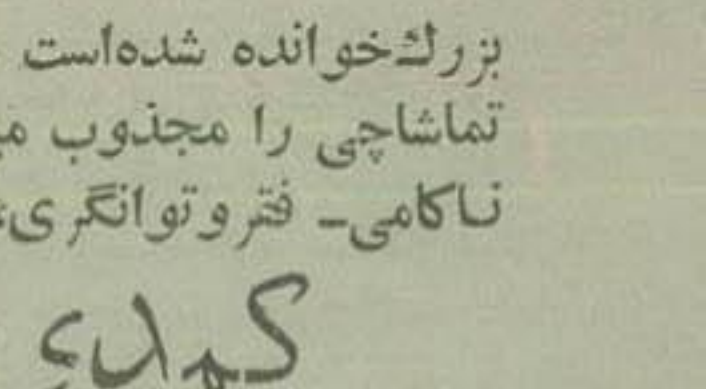 بزرگ‌خوانده شده‌است
تماشاچی را مجذوب
ناکامی ـ فقر و توانگری،